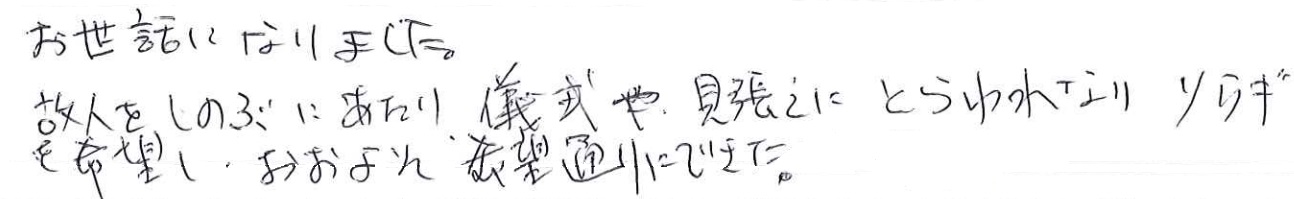 お世話になりました。
故人をしのぶにあたり 儀式や、見栄に とらわれない
を希望し、おおよそ 希望通りにできた。